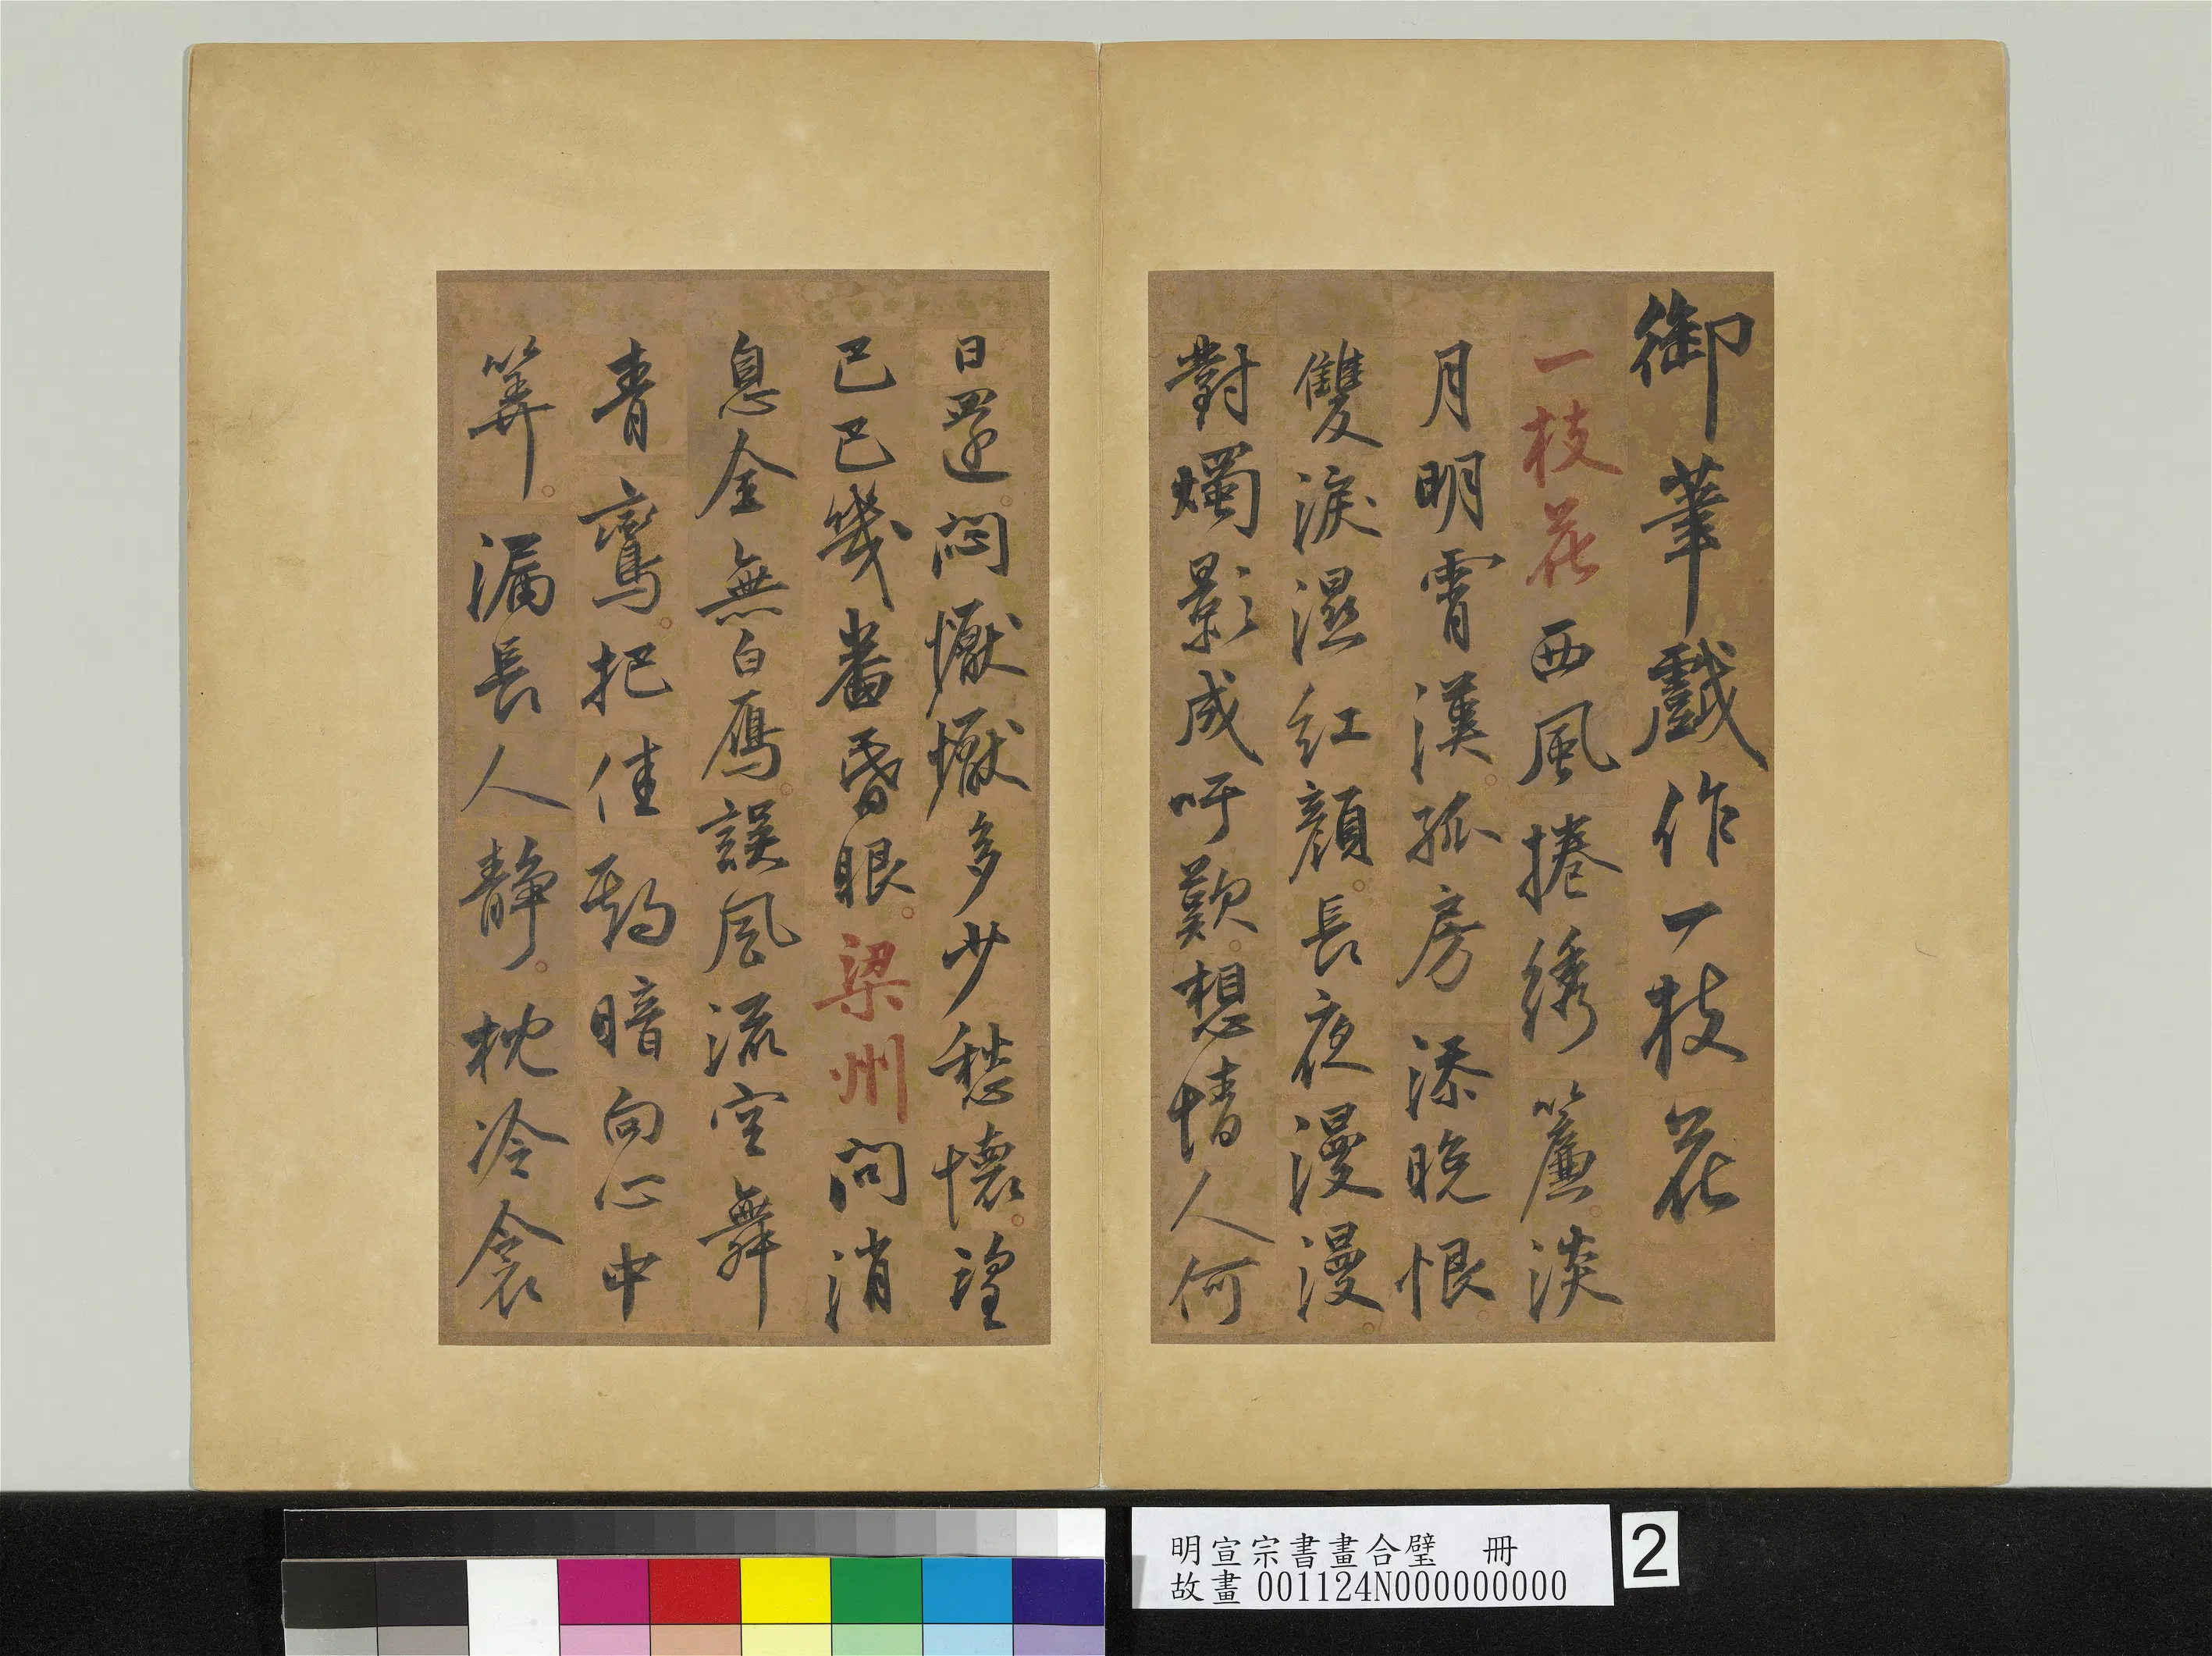 御筆戲作一枝花
一枝花西風捲绣簾淡
月明霄漢孤房添晚恨
雙淚濕紅顏長夜漫漫
對燭影成吁歎想情人何
日還悶懨懨多少愁懷
已巳幾番昏眼梁州問消
息全無白鴈誤風流空舞
青鸞把佳期暗向心中
筭漏長人靜枕冷衾
明宣宗書畫合璧 冊
故畫001124N000000000
2